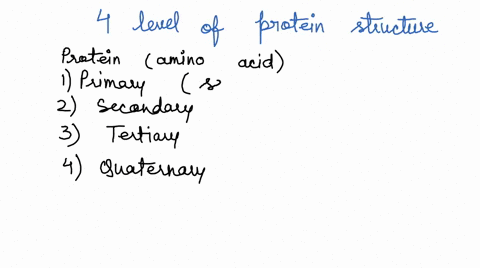 4 level of protein structure
Protein (amino acid)
1) Primary (s
2) Secondary
3) Tertiary
4) Quaternary